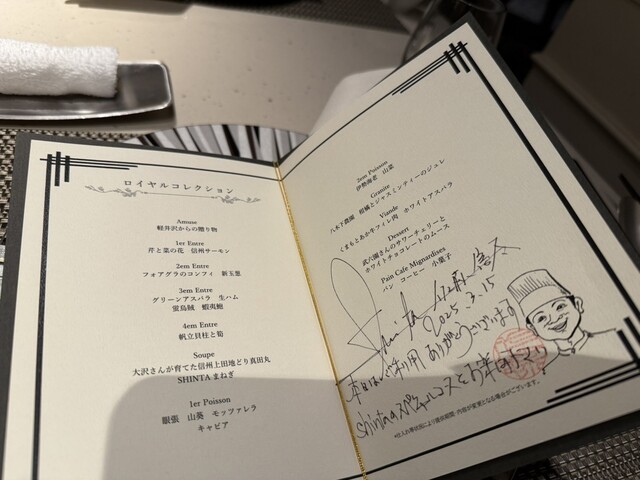 ロイヤルコレクション
Amuse
軽井沢からの贈り物
1er Entre
芹と菜の花 信州サーモン
2em Entre
フォアグラのコンフィ 新玉葱
3em Entre
グリーンアスパラ 生ハム
蛍烏賊 蝦夷鮑
4em Entre
帆立貝柱と筍
Soupe
大沢さんが育てた信州上田地どり真田丸
SHINTA まねぎ
1er Poisson
銀張 山葵 モッツァレラ
キャビア
2em Poisson
伊勢海老 山菜
Granite
八木下農園 柑橘とジャスミンティーのジュレ
Viande
くまもとあか牛フィレ肉 ホワイトアスパラ
Dessert
武八園さんのサワーチェリーと
ホワイトチョコレートのムース
Pain Cafe Mignardises
パン コーヒー 小菓子
2025.3.15
本日はご利用ありがとうございます
shintaスペシャルコースをお楽しみ下さい
*仕入れ等状況により提供期間・内容が変更となる場合がございます。